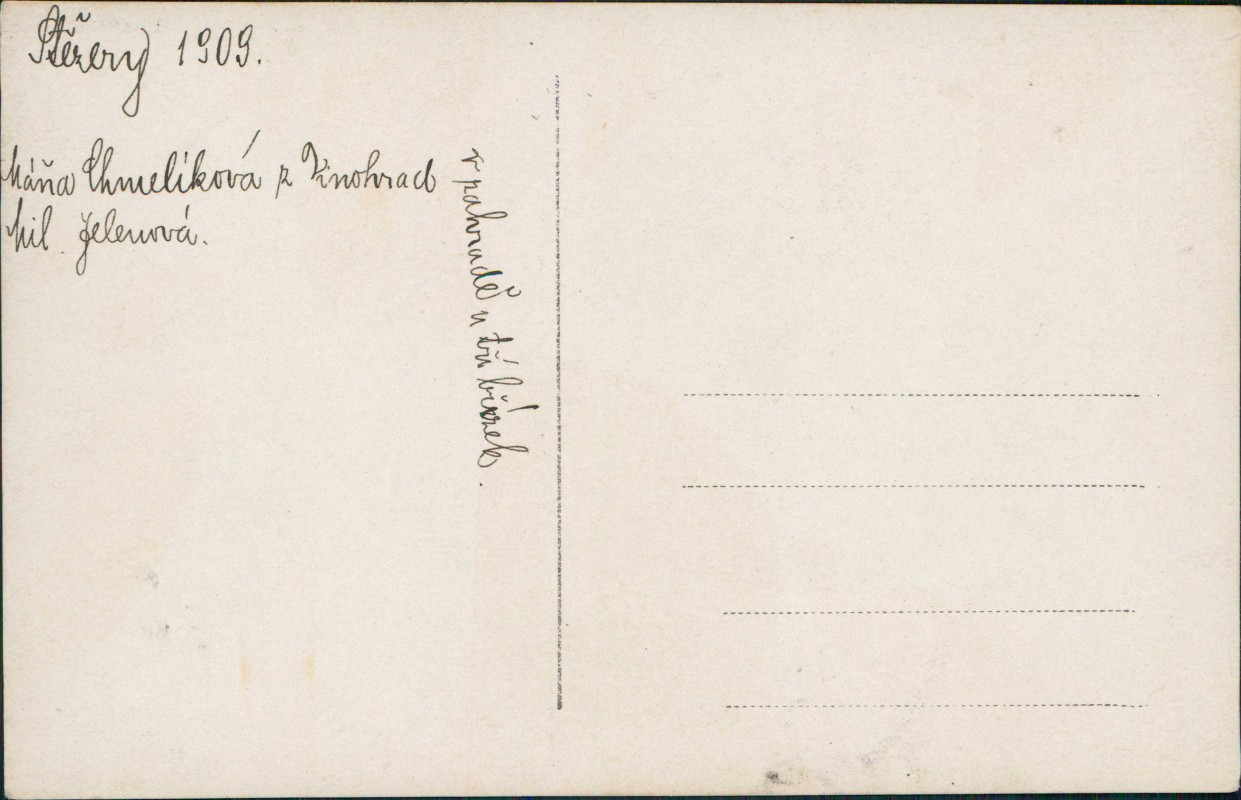 Stěžery 1909.
Máňa Chmelíková z Vinohrad
Mil. Jelenová.
v zahradě u tří břízek.